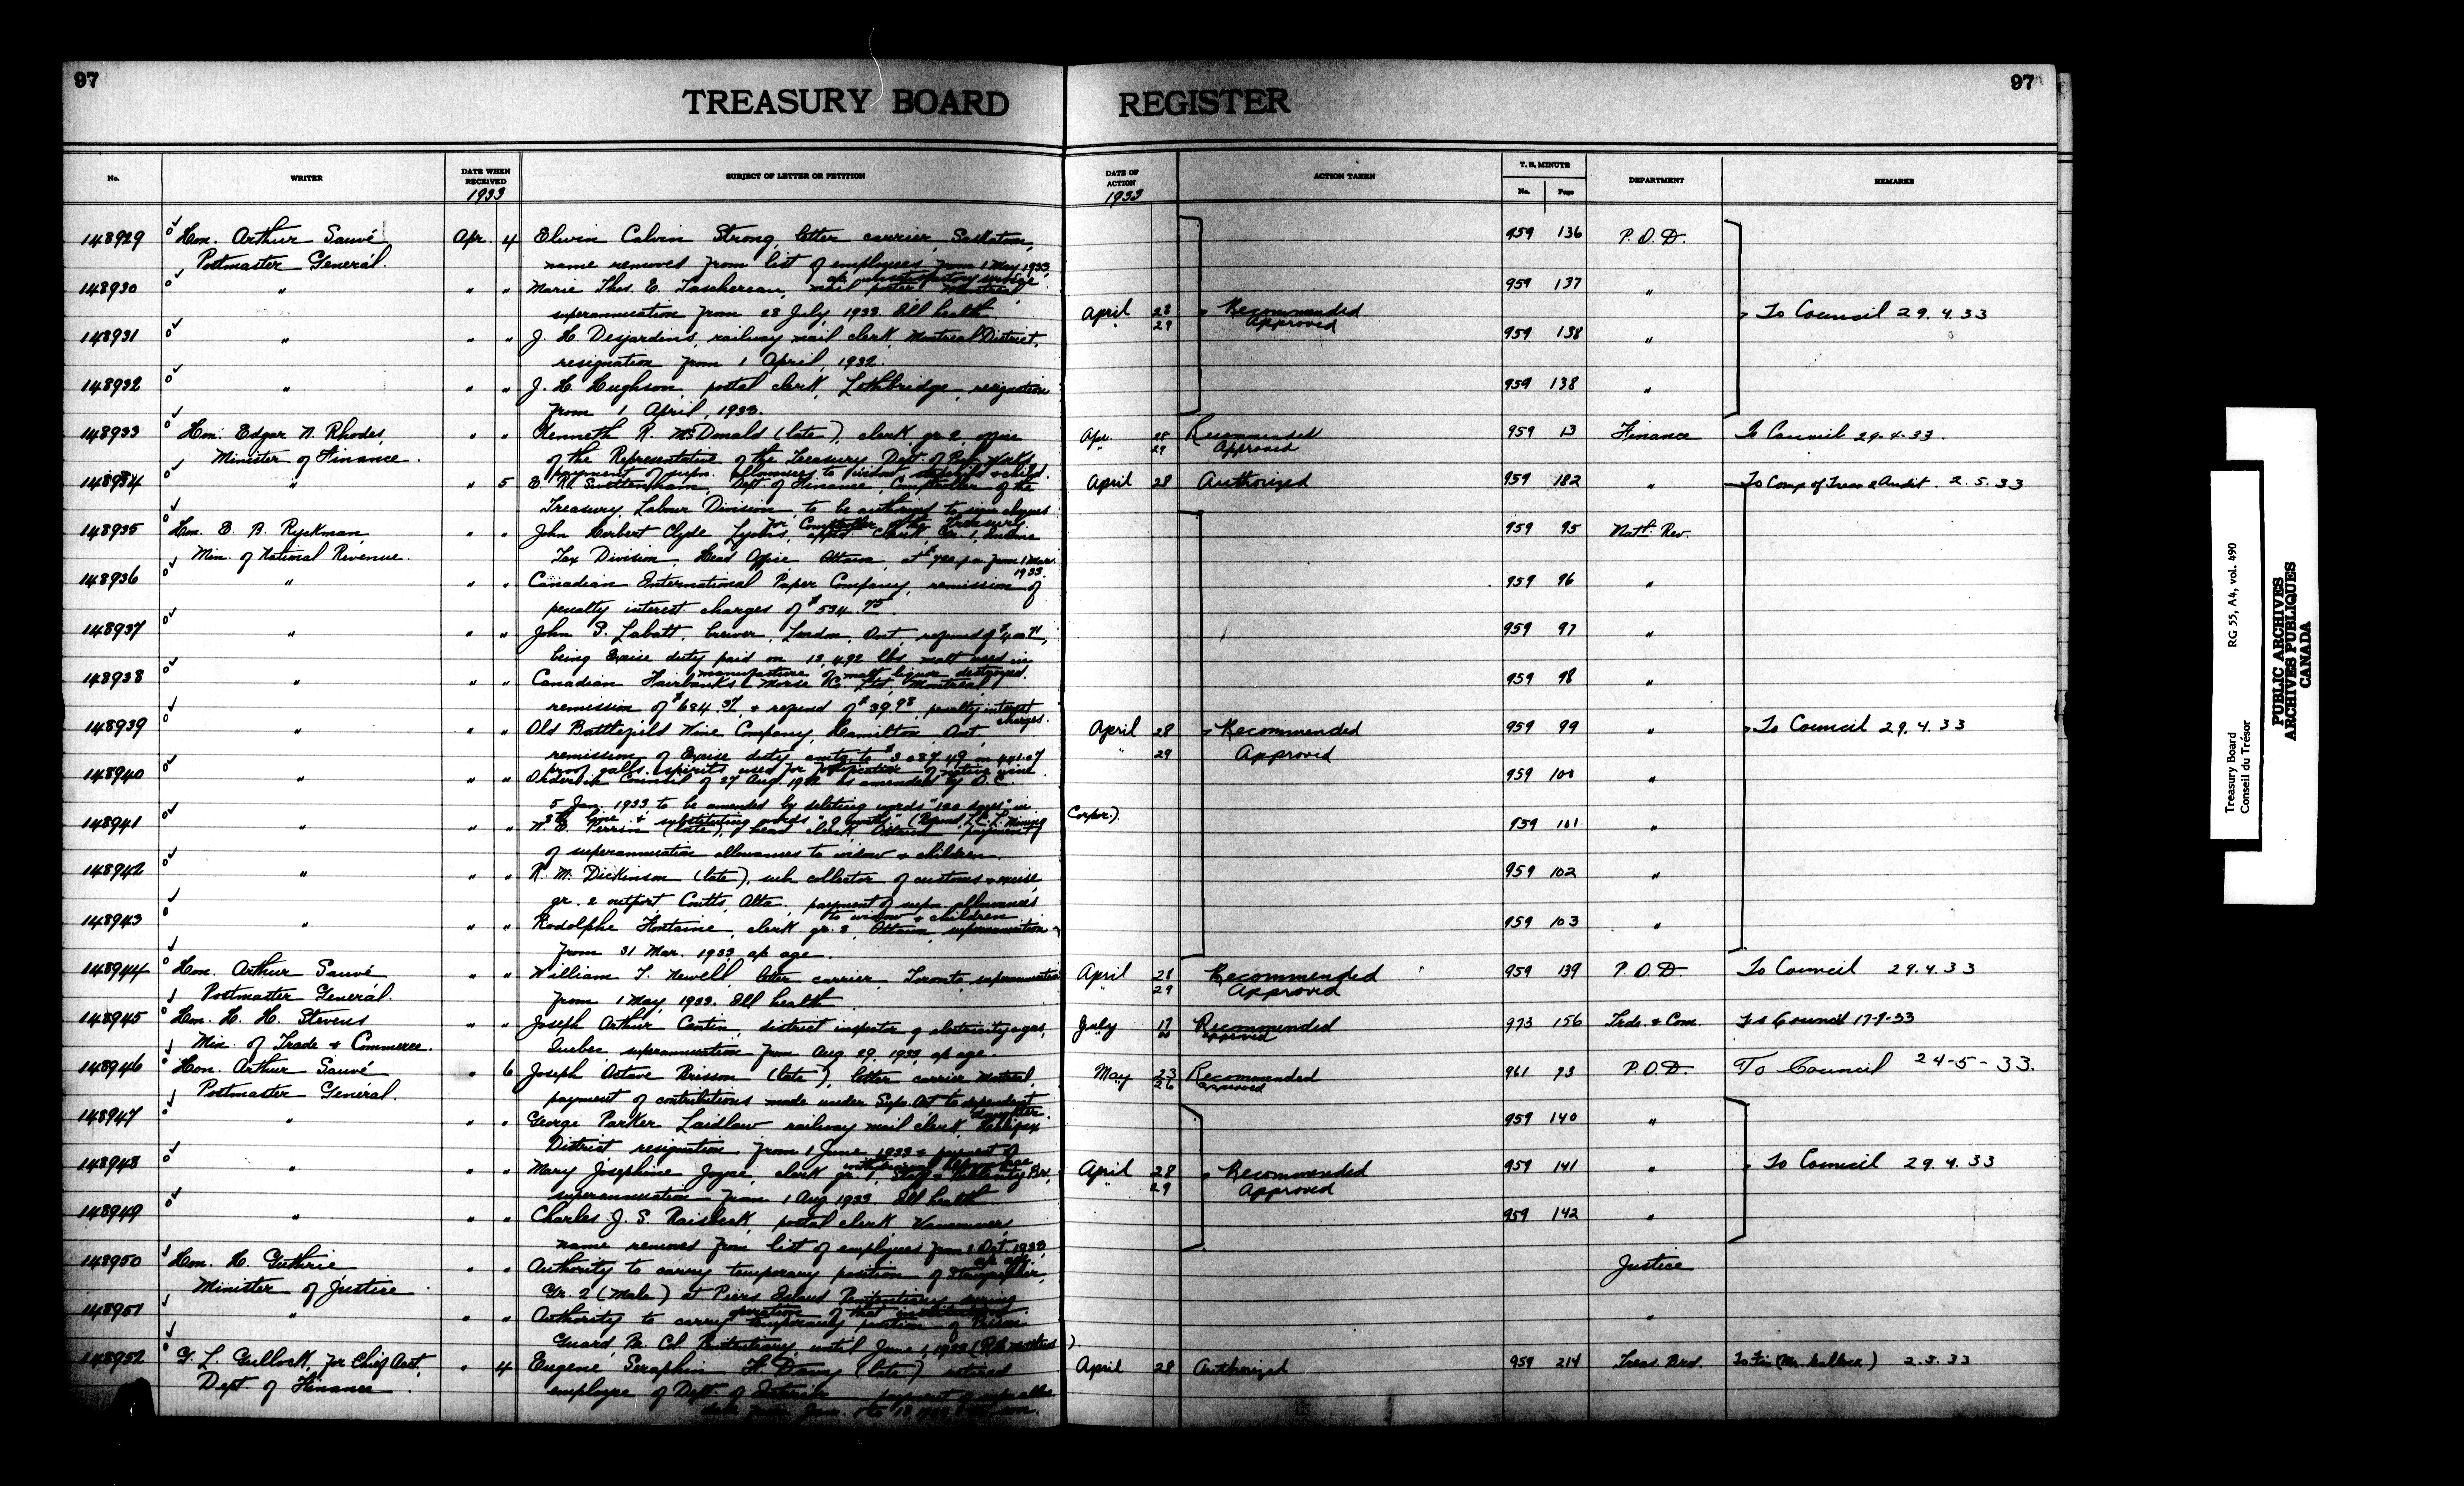 97
TREASURY BOARD REGISTER
97
No. WRITER DATE WHEN RECEIVED 1933 SUBJECT OF LETTER OR PETITION DATE OF ACTION 1933 ACTION TAKEN T. B. MINUTE No. Page DEPARTMENT REMARKS
148929 Hon. Arthur Sauvé Apr. 4 Elwin Calvin Strong, letter carrier, Saskatoon, 959 136 P.O.D.
Postmaster General. name removed from list of employees from 1 May 1933,
a/c unsatisfactory service
148930 " " " Marie Thos. E. Taschereau, mail porter Montreal, 959 137 "
superannuation from 28 July 1933. Ill health. April 28 Recommended To Council 29.4.33
" 29 Approved
148931 " " " J. H. Desjardins, railway mail clerk, Montreal District, 959 138 "
resignation from 1 April, 1932.
148932 " " " J. H. Hughson, postal clerk, Lethbridge, resignation 959 138 "
from 1 April, 1933.
148933 Hon. Edgar N. Rhodes, " " Kenneth R. McDonald (late), clerk, gr. 2, office Apr. 28 Recommended 959 13 Finance To Council 29.4.33.
Minister of Finance. of the Representative of the Treasury, Dept. of Pub. Works " 29 Approved
payment of supn. allowances to widow, stepchild & child.
148934 " " 5 E. R. Swettenham, Dept of Finance, Comptroller of the April 28 Authorized 959 182 " To Comp of Treas & Audit. 2.5.33
Treasury, Labour Division, to be authorized to sign cheques
for Comptroller of the Treasury
148935 Hon. E. B. Ryckman, " " John Herbert Clyde Lyons, appt. Clerk, Gr. 1, Income 959 95 Natl. Rev.
Min. of National Revenue. Tax Division, Head Office, Ottawa, at $720 p.a. from 1 Mar.
1933.
148936 " " " Canadian International Paper Company, remission of 959 96 "
penalty interest charges of $534.75.
148937 " " " John S. Labatt, brewer, London, Ont. refund of $400.71, 959 97 "
being Excise duty paid on 13,492 lbs malt used in
manufacture of malt liquor destroyed.
148938 " " " Canadian Fairbanks Morse Co. Ltd, Montreal, 959 98 "
remission of $684.37, & refund of $39.98, penalty interest
charges.
148939 " " " Old Battlefield Wine Company, Hamilton Ont. April 28 Recommended 959 99 " To Council 29.4.33
remission of Excise duty amtg. to $3087.49 on 441.07 " 29 Approved
proof galls. spirits used for fortification of native wine
148940 " " " Order in Council of 27 Aug. 1932 as amended by O.C. 959 100 "
5 Jan. 1933 to be amended by deleting words "120 days" in
8th line & substituting words "9 months" (Refund, L.C.L. Mining Corpn.).
148941 " " " W. E. Perrin (late), head clerk, Ottawa payment 959 101 "
of superannuation allowances to widow & children.
148942 " " " R. M. Dickinson (late), sub collector of customs & excise, 959 102 "
gr. 2 outport Coutts, Alta. payment of supn. allowances
to widow & children
148943 " " " Rodolphe Fontaine, clerk gr. 3, Ottawa, superannuation 959 103 "
from 31 Mar. 1933 a/c age.
148944 Hon. Arthur Sauvé " " William T. Newell, letter carrier, Toronto, superannuation April 28 Recommended 959 139 P.O.D. To Council 29.4.33
Postmaster General. from 1 May, 1933. Ill health " 29 Approved
148945 Hon. H. H. Stevens " " Joseph Arthur Cantin, district inspector of electricity & gas, July 17 Recommended 973 156 Trde. & Com. To Council 17-7-33
Min. of Trade & Commerce. Quebec, superannuation from Aug. 29, 1933, a/c age. Approved
148946 Hon. Arthur Sauvé " 6 Joseph Octave Brisson (late), letter carrier Montreal, May 23 Recommended 961 73 P.O.D. To Council 24-5-33.
Postmaster General. payment of contributions made under Supn. Act to dependent 26 Approved
daughter.
148947 " " " George Parker Laidlaw railway mail clerk, Halifax 959 140 "
District, resignation from 1 June 1933 & payment of
148948 " " " Mary Josephine Joyce, clerk gr. 1, April 28 Recommended 959 141 " To Council 29.4.33
superannuation from 1 Aug. 1933 Ill health " 29 Approved
148949 " " " Charles J. S. Raisbeck postal clerk Vancouver, 959 142 "
name removed from list of employees from 1 Oct. 1933,
a/c age.
148950 Hon. H. Guthrie " " Authority to carry temporary position of Stenographer, Justice
Minister of Justice Gr. 2 (Male) at Piers Island Penitentiary during
operation of that institution.
148951 " " " Authority to carry temporary position of Prison "
Guard, Br. Col. Penitentiary, until June 1, 1933
148952 G. L. Gullock, for Chief Acct, " 4 Eugene Seraphin (late) retired April 28 Authorized 959 214 Treas. Brd. To Fin 2.5.33
Dept of Finance. employee of Dept. of Interior payment of supn. allce.
Treasury Board RG 55, A4, vol. 490
Conseil du Trésor
PUBLIC ARCHIVES
ARCHIVES PUBLIQUES
CANADA